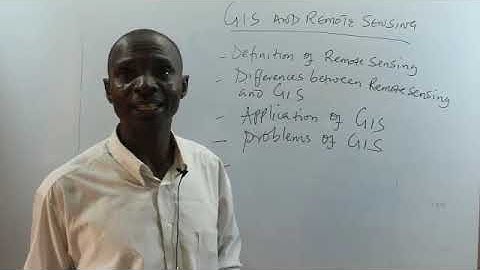 GIS AND REMOTE SENSING
- Definition of Remote Sensing
- Differences between Remote Sensing
and GIS
- Application of GIS
- Problems of GIS
-